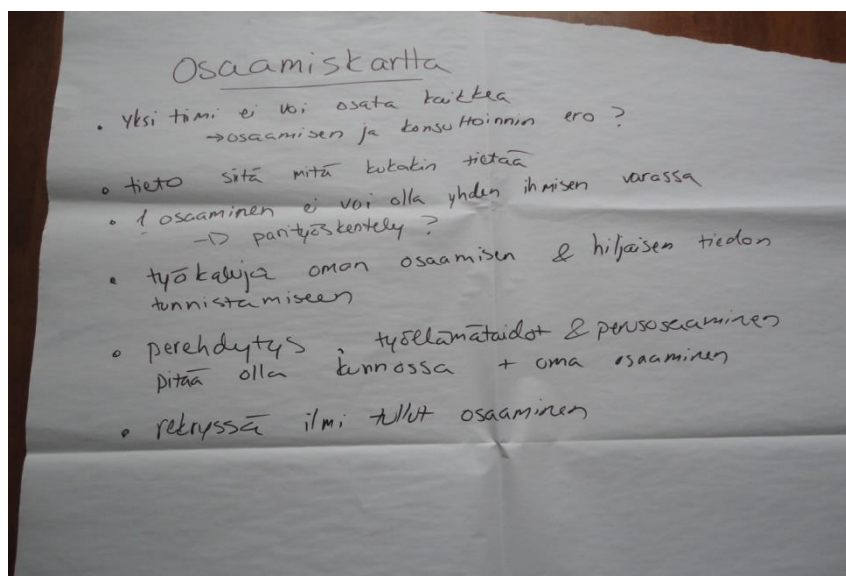 Osaamiskartta
• yksi tiimi ei voi osata kaikkea
→ osaamisen ja konsultoinnin ero?
• tieto sitä mitä kukakin tietää
• ! osaaminen ei voi olla yhden ihmisen varassa
→ parityöskentely?
• työkaluja oman osaamisen & hiljaisen tiedon
tunnistamiseen
• perehdytys, työelämätaidot & perusosaaminen
pitää olla kunnossa + oma osaaminen
• rekryssä ilmi tullut osaaminen